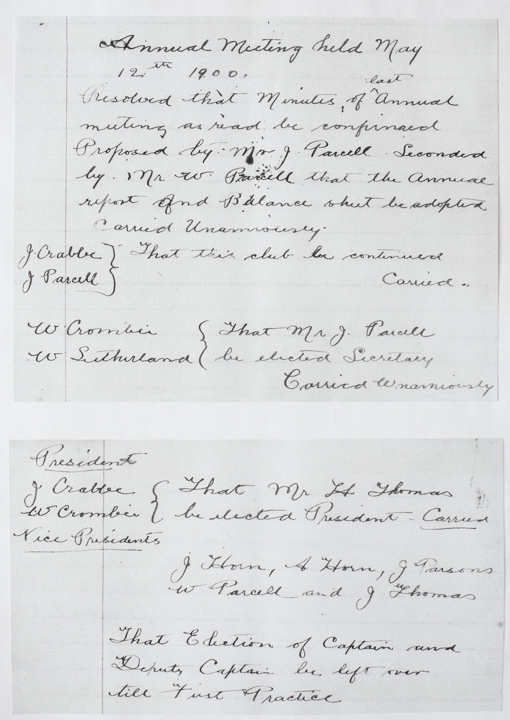 Annual Meeting held May
12th 1900.
Resolved that Minutes, of last Annual
meeting as read be confirmed
Proposed by Mr J. Parcell. Seconded
by. Mr W Parcell that the Annual
report And Balance sheet be adopted
Carried Unamiously.
J Crabbe } That this club be continued
J Parcell } Carried..
W Crombie { That Mr J. Parcell
W Sutherland { be elected Secretary
Carried Unamiously
President
J Crabbe { That Mr H Thomas
W Crombie { be elected President - Carried
Vice Presidents
J Horn, A Horn, J Parsons
W Parcell and J Thomas
That Election of Captain and
Deputy Captain be left over
till First Practice